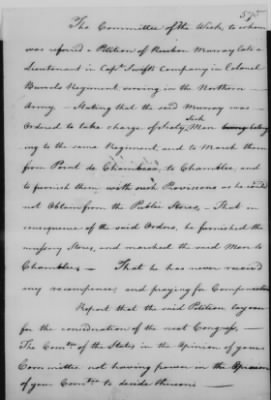 575
The Committee of the Week to whom
was refered a Petition of Reuben Murray late a
Lieutenant in Capt. Swifts Company in Colonel
Burrels Regiment, serving in the Northern
Army, - Stating that the said Murray was
Ordered to take charge of Sixty Sick Men belong
ing to the same Regiment, and to March them
from Point de Chambeau, to Chamblee, and
to furnish them with such Provisions as he could
not Obtain from the Public Stores, - That in
consequence of the said Orders, he furnished the
necessary Stores, and marched the said Men to
Chamblee, - That he has never received
any recompence, and praying for Compensation
Report that the said Petition lay over
for the consideration of the next Congress, -
The Comtee of the States in the Opinion of your
Committee not having power in the Opinion
of your Comtee to decide thereon -